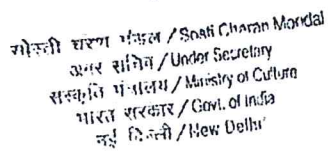 गोस्ती चरण मंडल / Sosti Charan Mondal
अवर सचिव / Under Secretary
संस्कृति मंत्रालय / Ministry of Culture
भारत सरकार / Govt. of India
नई दिल्ली / New Delhi